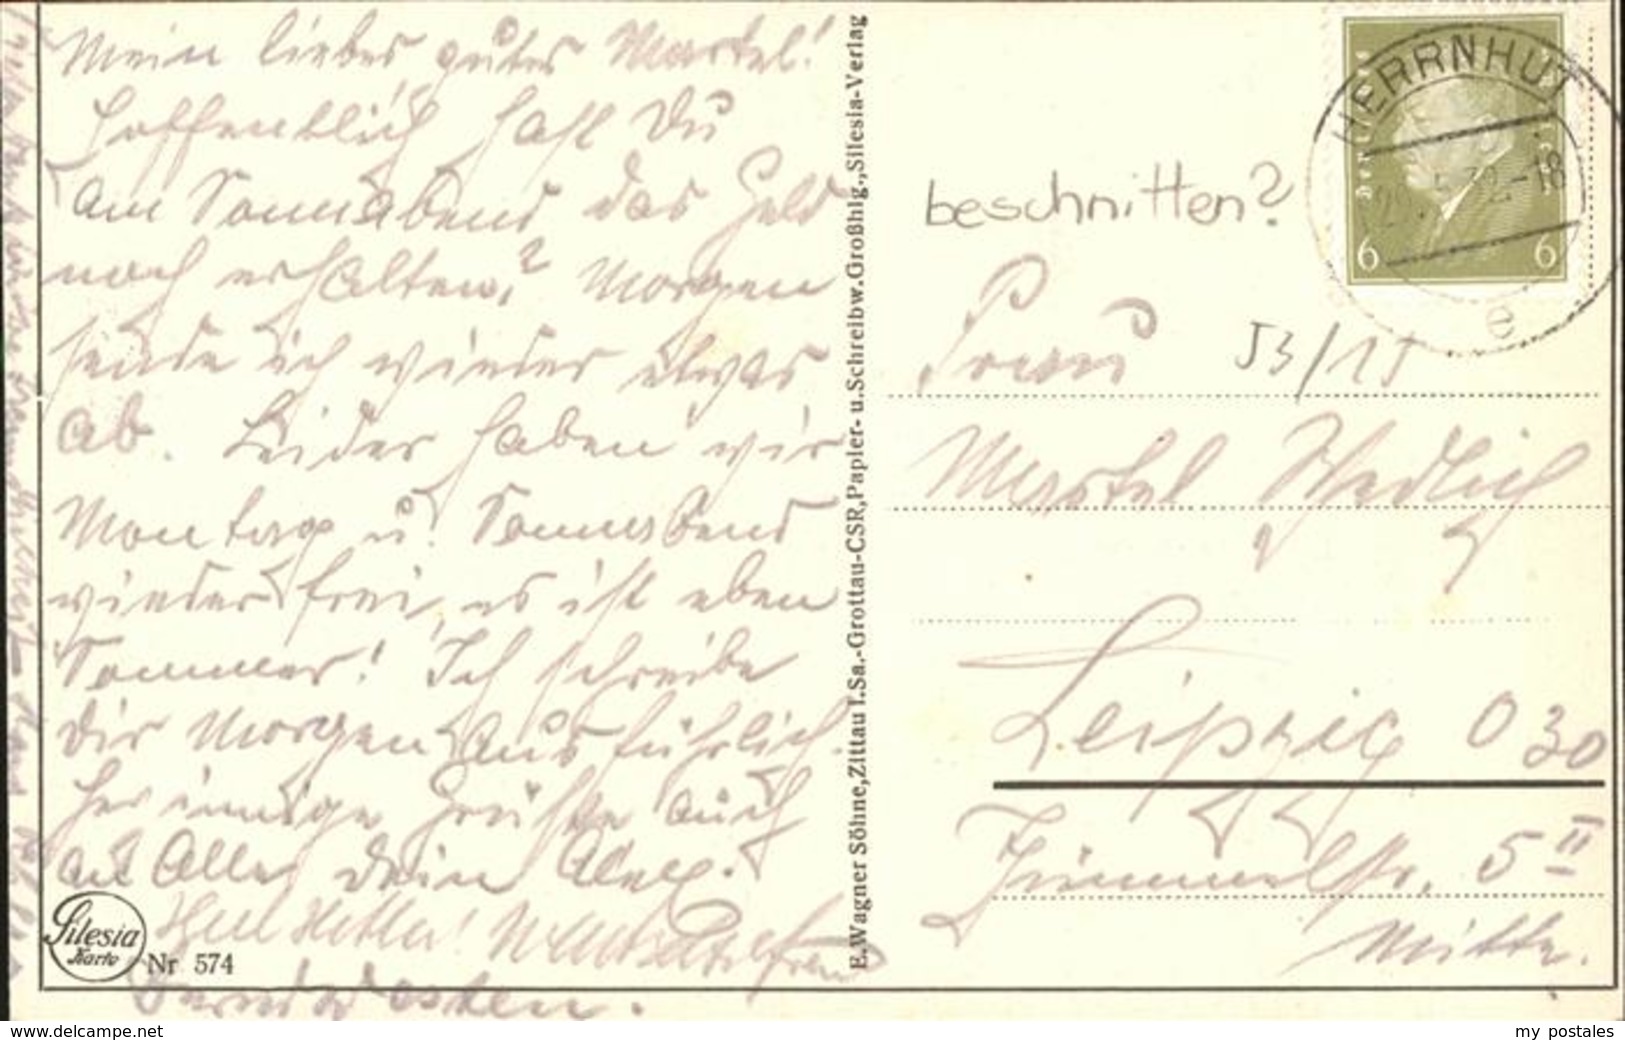 Mein liebes gutes Martel!
Hoffentlich hast Du
am Sonnabend das Geld
noch erhalten? Morgen
sende ich wieder etwas
ab. Leider haben wir
Montag u. Sonnabend
wieder frei, es ist eben
Sommer! Ich schreibe
Dir Morgen ausführlich.
Her innige Grüße auch
an Alle, Dein Alex.
Heil Hitler!
Silesia
Karte
Nr 574
E. Wagner Söhne, Zittau I. Sa.-Grottau-CSR, Papier- u. Schreibw. Großhlg., „Silesia-Verlag
Deutsches Reich
6 6
HERRNHUT
29.5.32.-18
e
beschnitten?
J3/15
Frau
Martel
Leipzig O 30
5 II
Mitte.
www.delcampe.net
my postales